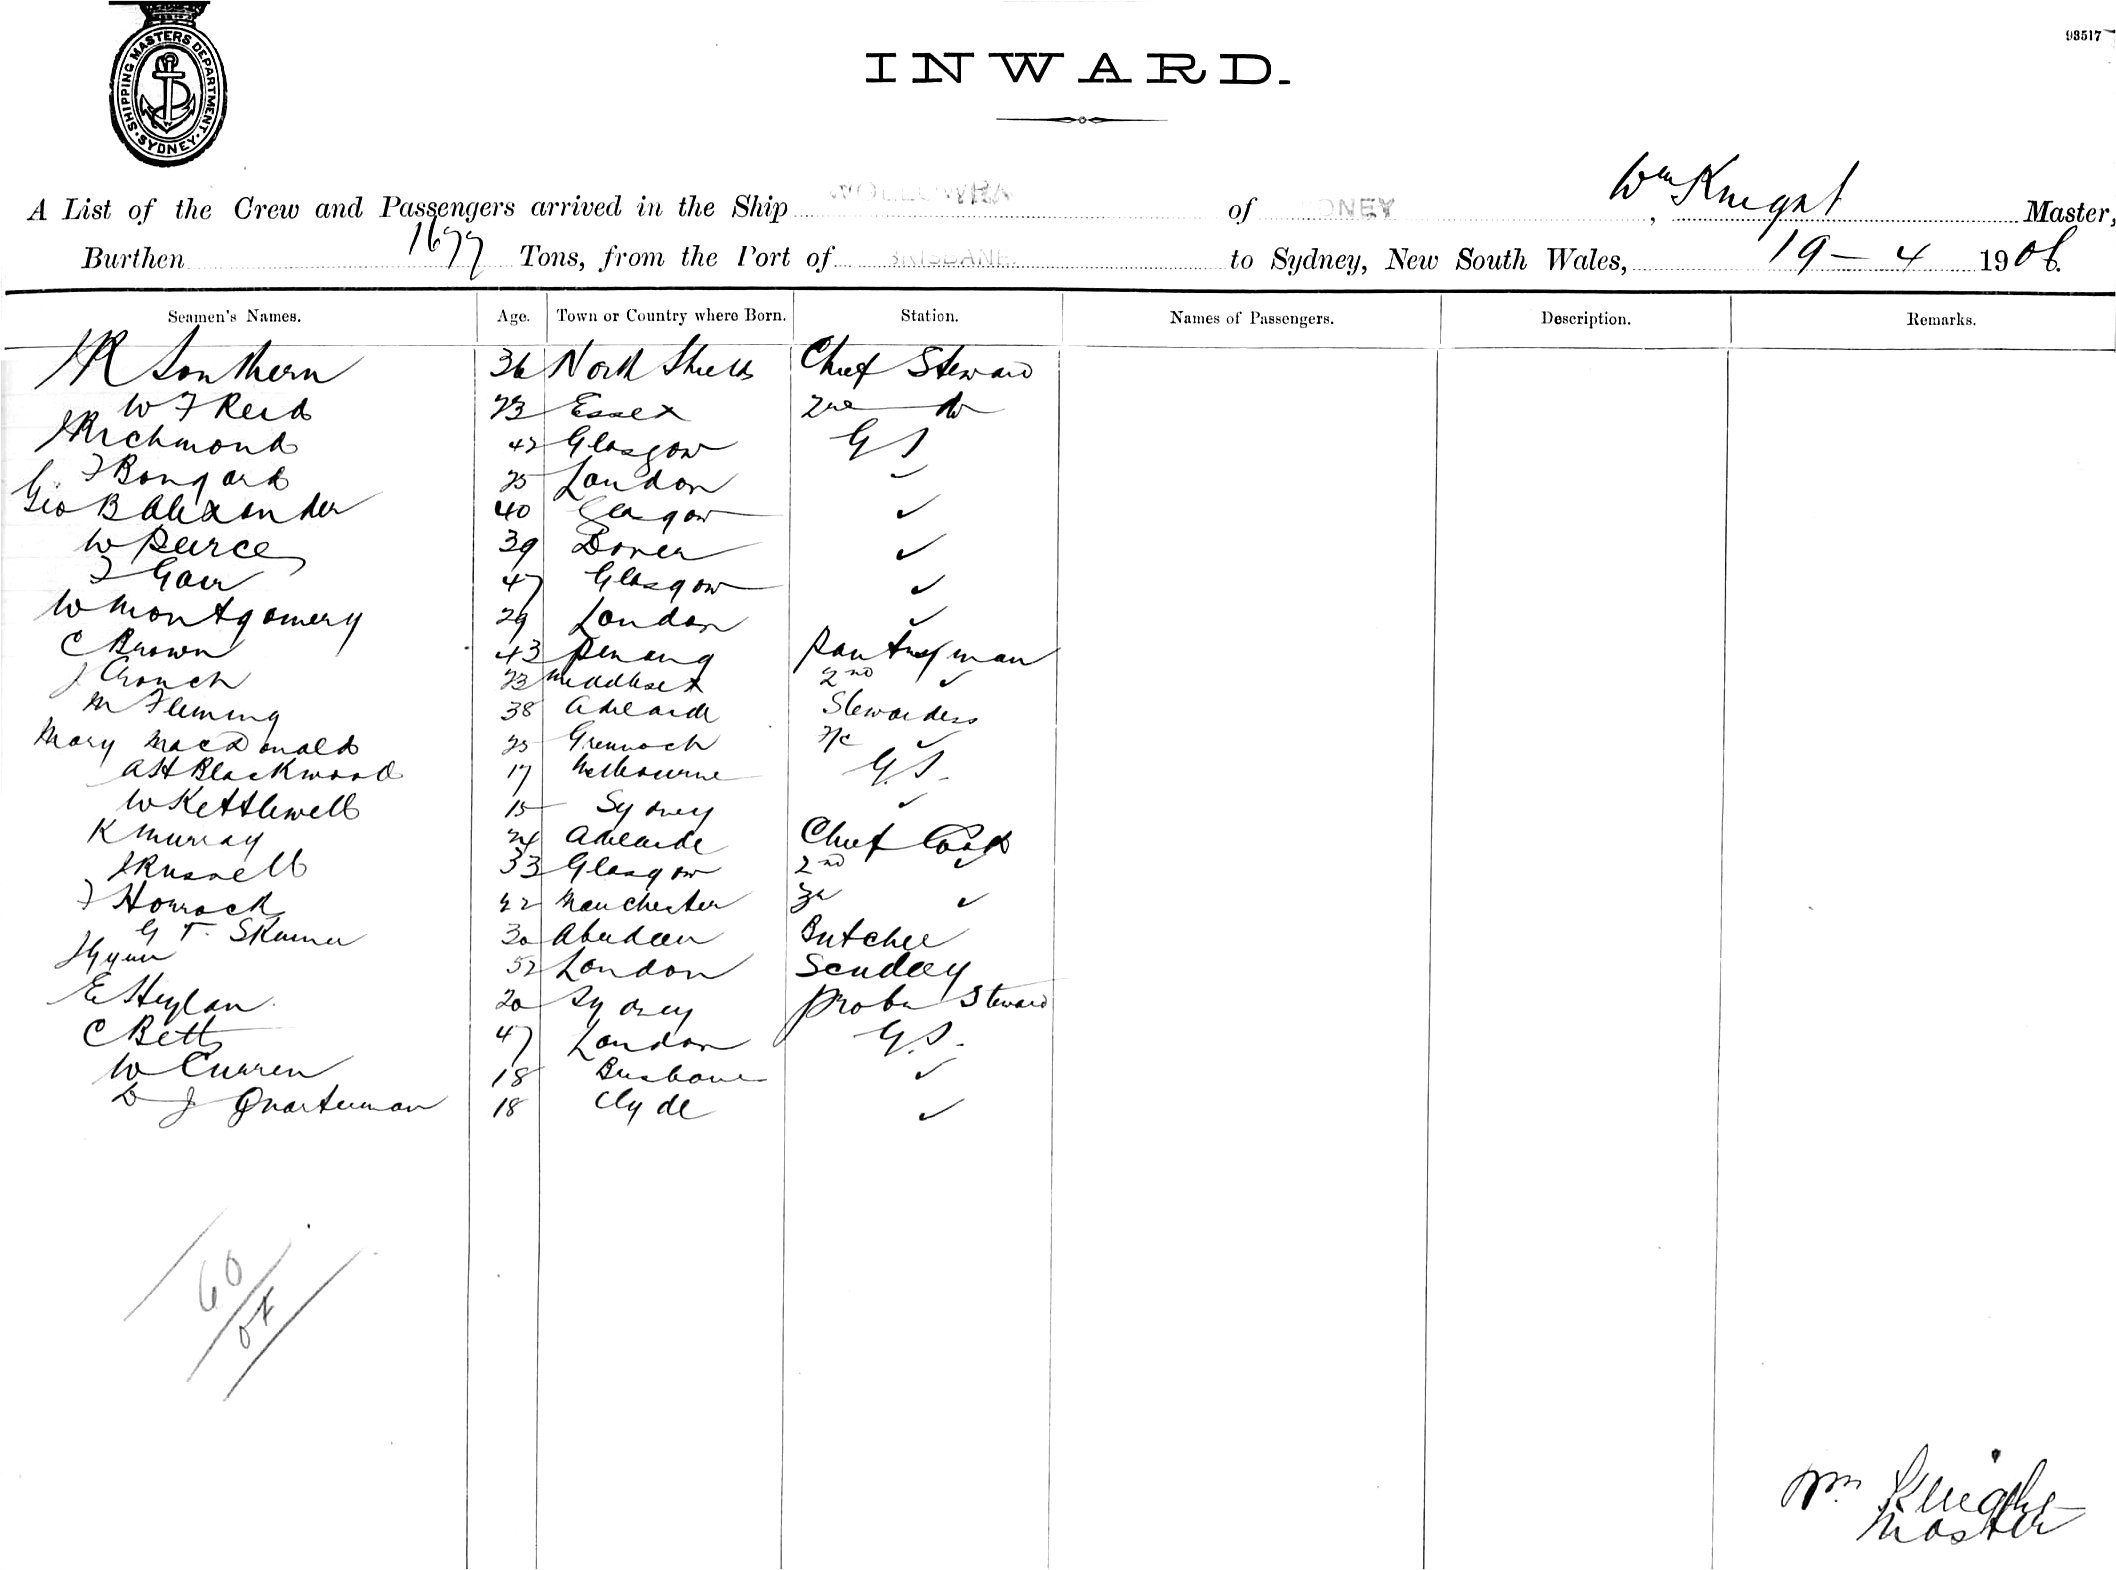 SHIPPING MASTERS DEPARTMENT · SYDNEY ·
93517
INWARD.
A List of the Crew and Passengers arrived in the Ship WOLLOWRA of SYDNEY, Wm Knight Master,
Burthen 1677 Tons, from the Port of BRISBANE to Sydney, New South Wales, 19 - 4 1906.
Seamen's Names. Age. Town or Country where Born. Station. Names of Passengers. Description. Remarks.
JR Southern 36 North Shields Chief Steward
W F Reid 23 Essex 2nd do
J Richmond 42 Glasgow G S
F Bongard 25 London ✓
Geo B Alexander 40 Glasgow ✓
W Peirce 39 Dover ✓
F Gair 47 Glasgow ✓
W Montgomery 29 London ✓
C Brown 43 Penang Pantryman
J Crouch 23 Middlesex 2nd ✓
M Fleming 38 Adelaide Stewardess
Mary MacDonald 25 Greenock ✓
AH Blackwood 17 Melbourne G.S.
W Kettlewell 15 Sydney ✓
K Murray 24 Adelaide Chief Cook
J Russell 33 Glasgow 2nd ✓
F Horrock 22 Manchester 3rd ✓
G T. Skinner 30 Aberdeen Butcher
J Gynn 52 London Scullery
E Heylan 20 Sydney Probr Steward
C Betts 47 London G.S.
W Curren 18 Brisbane ✓
D J Quarterman 18 Clyde ✓
60
Wm Knight
Master